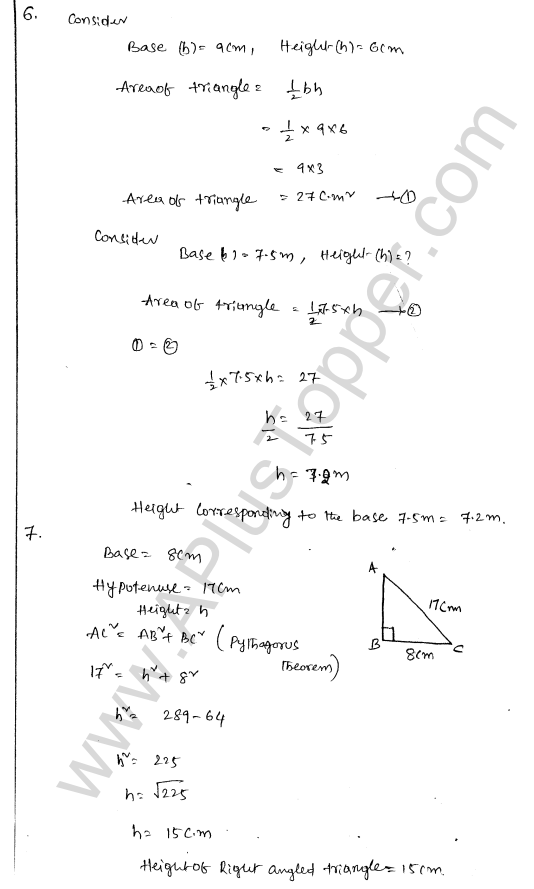 6. Consider
Base (h) = 9cm, Height (h) = 6cm
Area of triangle = 1/2 bh
= 1/2 × 9×6
= 9×3
Area of triangle = 27 C.m² → ①
Consider
Base b) = 7.5m, Height (h) = ?
Area of triangle = 1/2 × 7.5 × h → ②
① = ②
1/2 × 7.5 × h = 27
h/2 = 27/75
h = 7.2m
Height Corresponding to the base 7.5m = 7.2m.
7.
Base = 8cm
Hypotenuse = 17cm
Height = h
AC² = AB² + BC² (Pythagorus
Theorem)
17² = h² + 8²
h² = 289 - 64
h² = 225
h = √225
h = 15 C.m
Height of Right angled triangle = 15cm.
A
17cm
B
8cm
C
www.APlusTopper.com